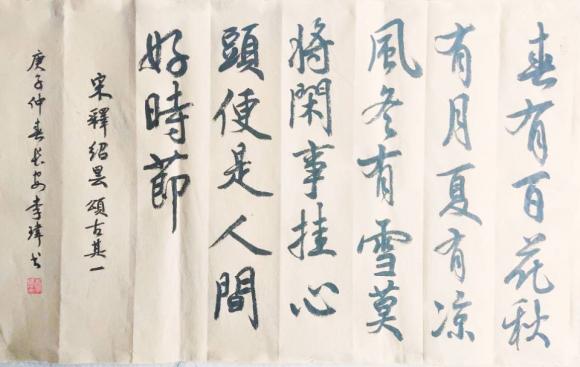 春有百花秋
有月夏有凉
風冬有雪莫
將閑事挂心
頭便是人間
好時節
宋釋紹曇頌古其一
庚子仲春长安李瑋书